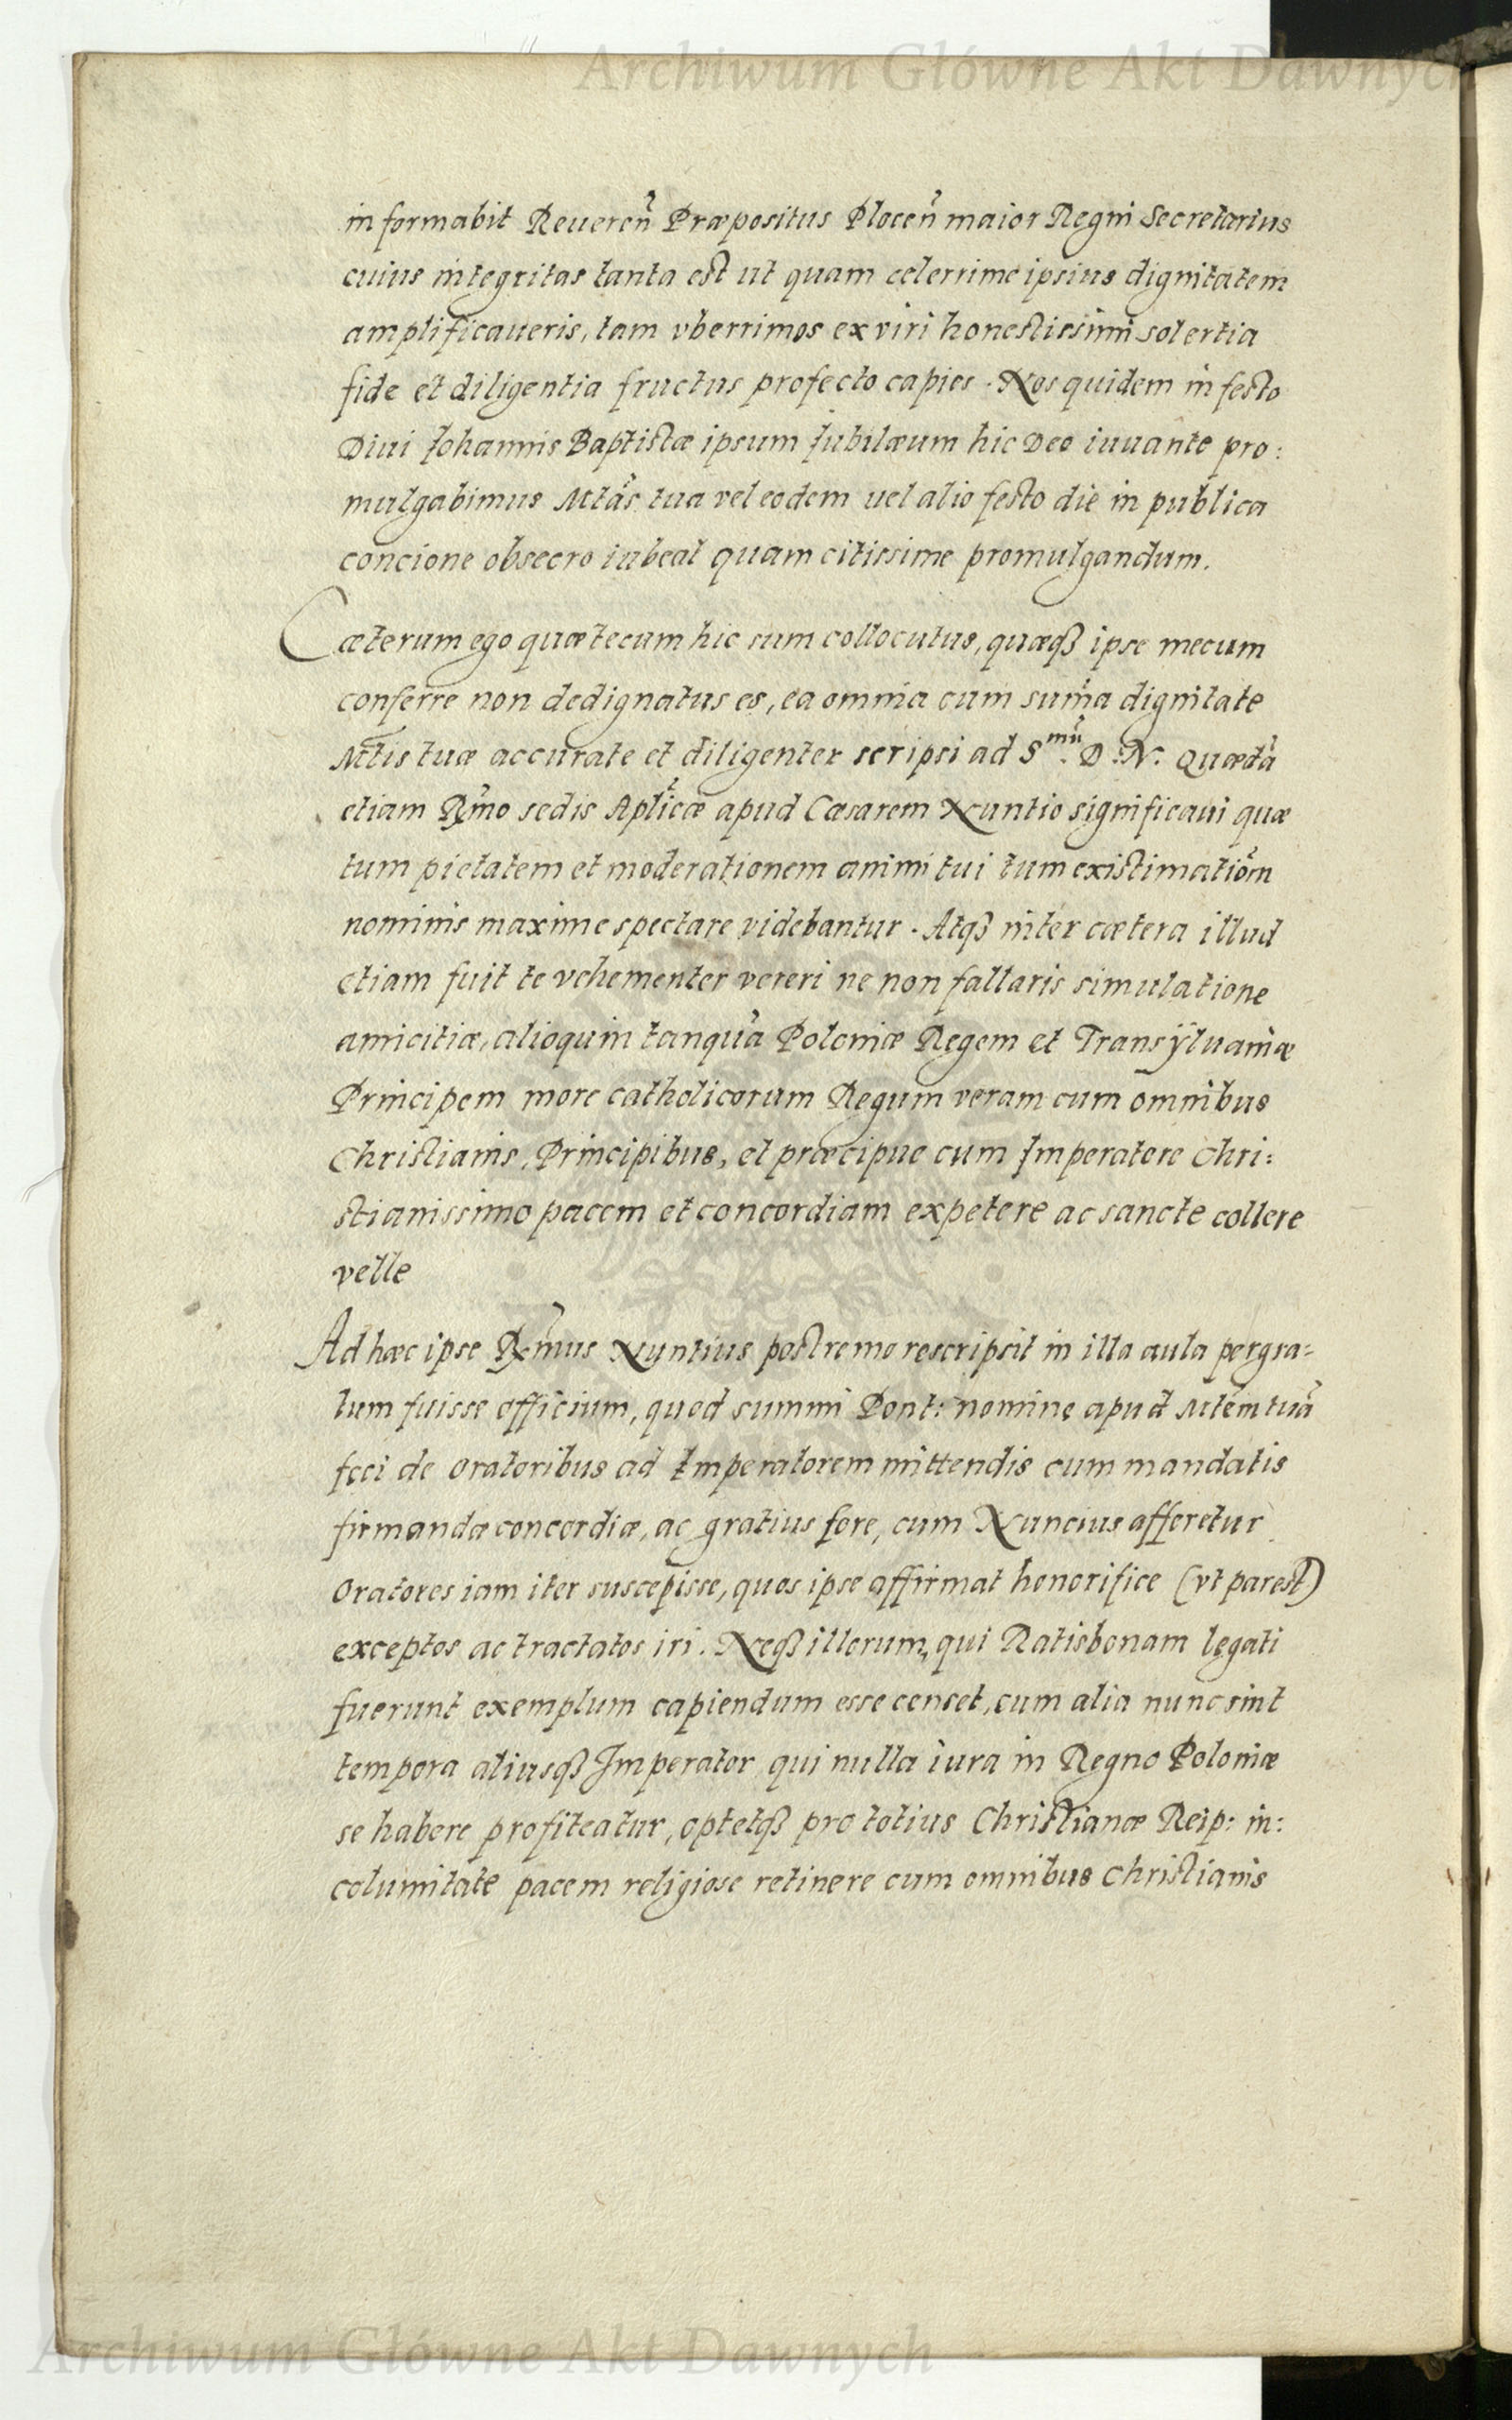 Archiwum Główne Akt Dawnych
informabit Reueren̄ Præpositus Plocen̄ maior Regni Secretarius
cuius integritas tanta est ut quam celerrime ipsius dignitatem
amplificaueris, tam vberrimos ex viri honestissimi solertia
fide et diligentia fructus profecto capies. Nos quidem in festo
Diui Johannis Baptistæ ipsum Jubilæum hic Deo iuuante pro:
mulgabimus Mtas tua vel eodem uel alio festo die in publica
concione obsecro iubeat quam citissime promulgandum.
Cæterum ego quæ tecum hic sum collocutus, quæqꝫ ipse mecum
conferre non dedignatus es, ea omnia cum sum̄a dignitate
Mtis tuæ accurate et diligenter scripsi ad S.mū D: N: Quædā
etiam Rm̄o sedis Aplicæ apud Cæsarem Nuntio significaui quæ
tum pietatem et moderationem animi tui tum existimatiōm
nominis maxime spectare videbantur. Atqꝫ inter cætera illud
etiam fuit te vehementer vereri ne non fallaris simulatione
amicitiæ, alioquin tanquā Poloniæ Regem et Transÿluaniæ
Principem more catholicorum Regum veram cum omnibus
Christianis, Principibus, et præcipue cum Imperatore Chri:
stianissimo pacem et concordiam expetere ac sancte collere
velle
Ad hæc ipse Rm̄us Nuntius postremo rescripsit in illa aula pergra=
tum fuisse officium, quod summi Pont: nomine apud Mtem tuā
feci de oratoribus ad Imperatorem mittendis cum mandatis
firmandæ concordiæ, ac gratius fore, cum Nuncius afferetur
Oratores iam iter suscepisse, quos ipse affirmat honorifice (vt par est)
exceptos ac tractatos iri. Neqꝫ illorum, qui Ratisbonam legati
fuerunt exemplum capiendum esse censet, cum alia nunc sint
tempora aliusqꝫ Imperator qui nulla iura in Regno Poloniæ
se habere profiteatur, optetqꝫ pro totius Christianæ Reip: in:
columitate pacem religiose retinere cum omnibus Christianis
Archiwum Główne Akt Dawnych